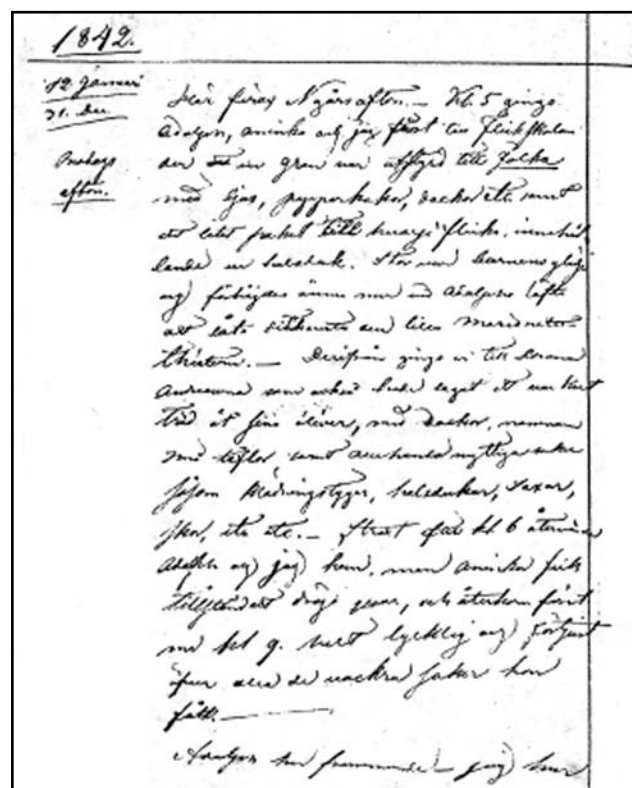 1842.
12 Januari
31. Dec.
Onsdags
afton.
Här firas Nyårsafton. — Kl. 5 gingo
Adolfen, Annika och jag först till flickskolan
der en gran var uppklädd till Jolka
med ljus, pepparkakor, dockor etc. samt
ett litet paket till hvarje flicka, innehål
lande en halsduk. Stor var barnens glädje
och förhöjdes ännu mer vid Adolfens löfte
att låta dem se en liten Marionett-
theatern. — Derifrån gingo vi till
som också hade lagat ett vackert
träd åt sina elever, med dockor,
med taflor samt allehanda nyttiga saker
såsom klädningstyger, halsdukar, saxar,
skor, etc etc. — Straxt före kl. 6 återvände
Adolfen och jag hem, men Annika fick
tillstånd att dröja qvar, och återkom först
vid kl 9. helt lycklig och förtjust
öfver alla de vackra saker hon
fått. —
Adolfen har främmande — jag har